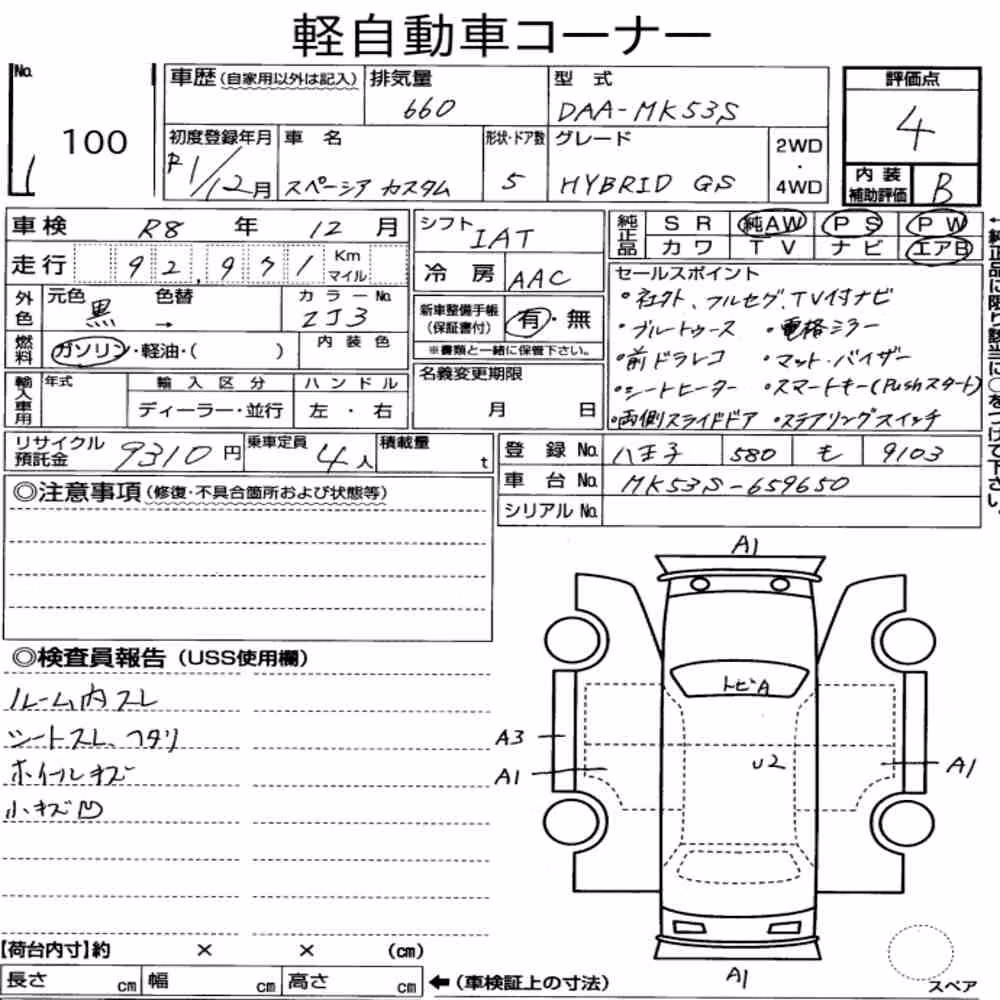 軽自動車コーナー
No. 100
車歴(自家用以外は記入) 排気量 660 型式 DAA-MK53S 評価点 4
初度登録年月 R1/12月 車名 スペーシア カスタム 形状・ドア数 5 グレード HYBRID GS 2WD・4WD
内装補助評価 B
車検 R8年 12月 シフト IAT 純正品 SR 純AW PS PW
カワ TV ナビ エアB
走行 92,971 Km マイル 冷房 AAC
セールスポイント
・社外、フルセグ、TV付ナビ
・ブルートゥース ・電格ミラー
・前ドラレコ ・マット・バイザー
・シートヒーター ・スマートキー(Pushスタート)
・両側スライドドア ・ステアリングスイッチ
外色 元色 黒 色替 → カラーNo. ZJ3
新車整備手帳(保証書付) 有・無
※書類と一緒に保管下さい。
燃料 ガソリン・軽油・( ) 内装色
輸入車用 年式 輸入区分 ハンドル
ディーラー・並行 左・右
名義変更期限 月 日
リサイクル預託金 9310円 乗車定員 4人 積載量 t
登録No. 八王子 580 も 9103
車台No. MK53S-659650
シリアルNo.
←純正品に限り該当に○をつけて下さい。
◎注意事項(修復・不具合箇所および状態等)
◎検査員報告(USS使用欄)
ルーム内スレ
シートスレ、コゲリ
ホイールキズ
小キズ凹
A1
トビA
A3
A1
U2
A1
A1
スペア
【荷台内寸】約 × × (cm)
長さ cm 幅 cm 高さ cm ←(車検証上の寸法)